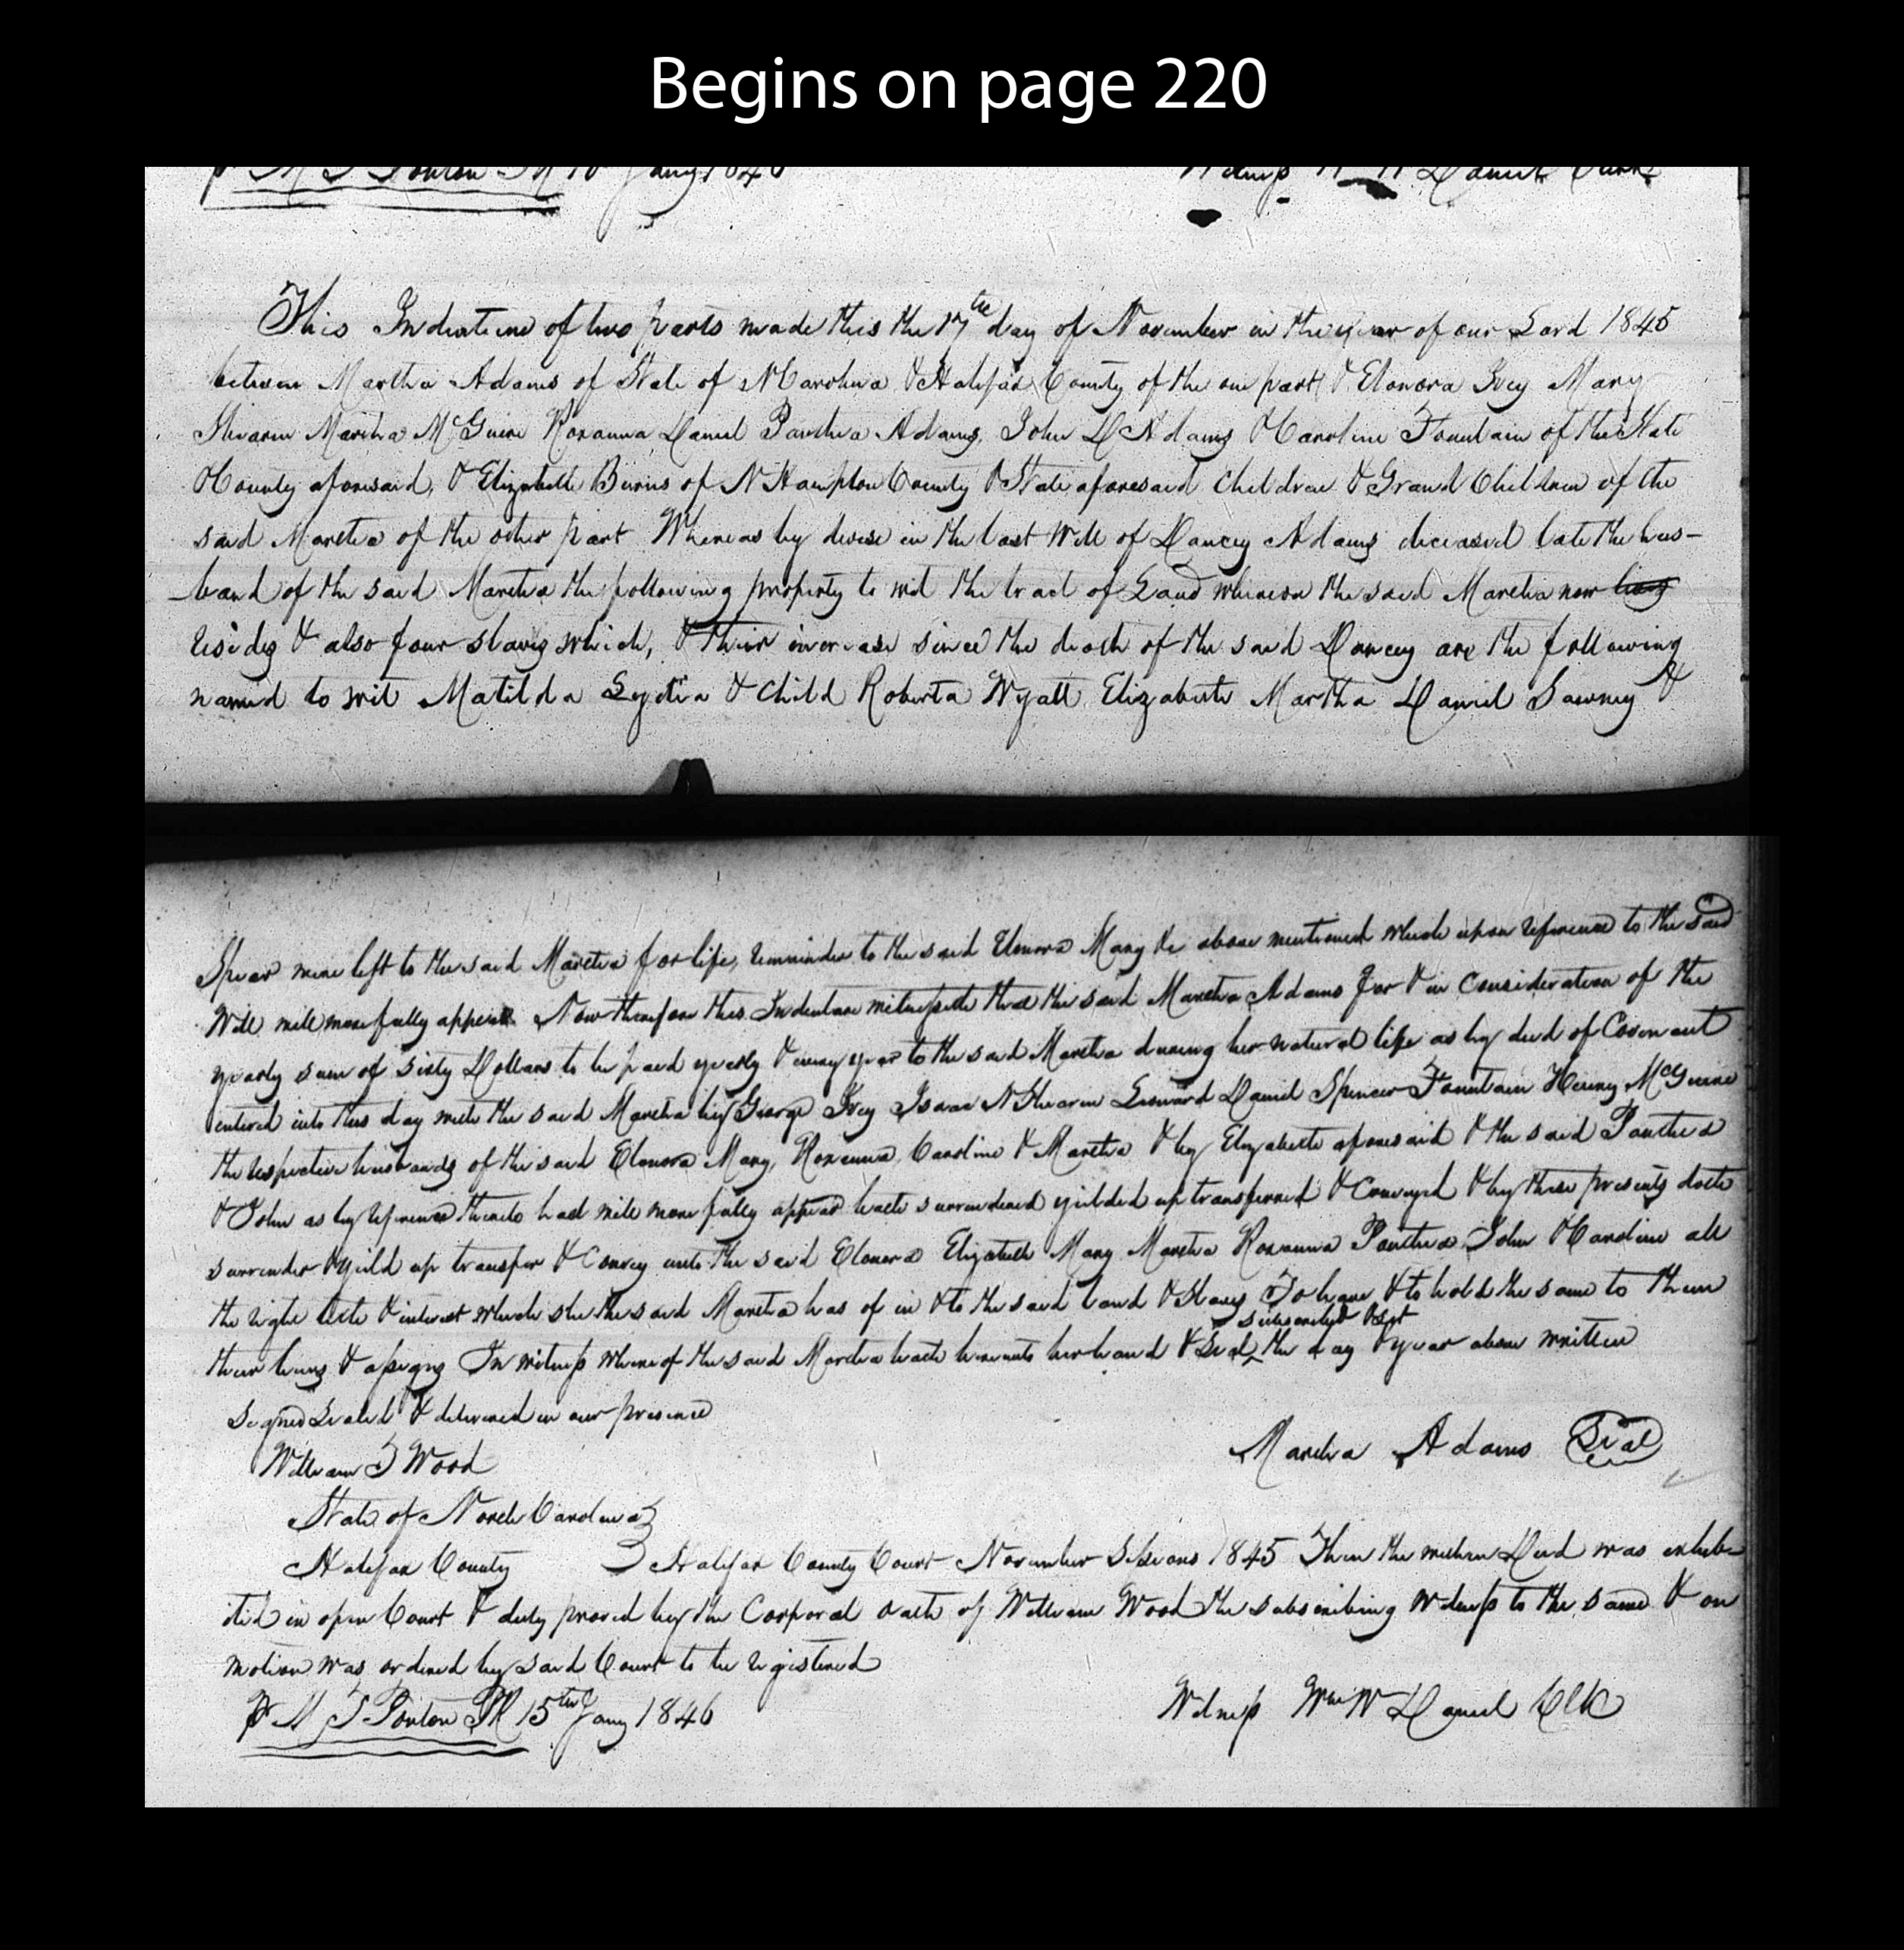 Begins on page 220
This Indenture of two parts made this the 17th day of November in the year of our Lord 1845
between Martha Adams of State of N Carolina & Halifax County of the one part & Elonora Ivey Mary
Shearin Martha McGuire Roxanna Daniel Panthea Adams, John D Adams & Caroline Fountain of the State
& County aforesaid, & Elizabeth Burns of N Hampton County & State aforesaid Children & Grand Children of the
said Martha of the other part Whereas by devise in the last Will of Dancey Adams deceased late the hus-
band of the said Martha the following property to wit the tract of Land whereon the said Martha now
resides & also four slaves which, & their increase since the death of the said Dancey are the following
named to wit Matilda Lydia & Child Roberta Wyatt Elizabeth Martha Daniel Sawney &
Spear were left to the said Martha for life, remainder to the said Elonora Mary &c above mentioned which upon reference to the said
Will will more fully appear Now therefore this Indenture witnesseth that the said Martha Adams for & in Consideration of the
yearly sum of Sixty Dollars to be paid yearly & every year to the said Martha during her natural life as by deed of Covenant
entered into this day with the said Martha by George Ivey Isaac N Shearin Leonard Daniel Spencer Fountain Henry McGuire
the respective husbands of the said Elonora Mary, Roxanna Caroline & Martha & by Elizabeth aforesaid & the said Panthea
& John as by reference thereto had will more fully appear hath surrendered yielded up transferred & Conveyed & by these presents doth
surrender & yield up transfer & Convey unto the said Elonora Elizabeth Mary Martha Roxanna Panthea John & Caroline all
the right title & interest which she the said Martha has of in & to the said land & Slaves To have & to hold the same to them
their heirs & assigns In witness whereof the said Martha hath hereunto her hand & Seal subscribed & set the day & year above written
Signed Sealed & delivered in our presence
William T Wood
Martha Adams Seal
State of North Carolina
Halifax County Halifax County Court November Sessions 1845 Then the within Deed was exhib-
ited in open Court & duly proved by the Corporal oath of William Wood the subscribing Witness to the same & on
motion was ordered by said Court to be registered
M T Ponton PR 15th Jany 1846
Witness Wm W Daniel Clk